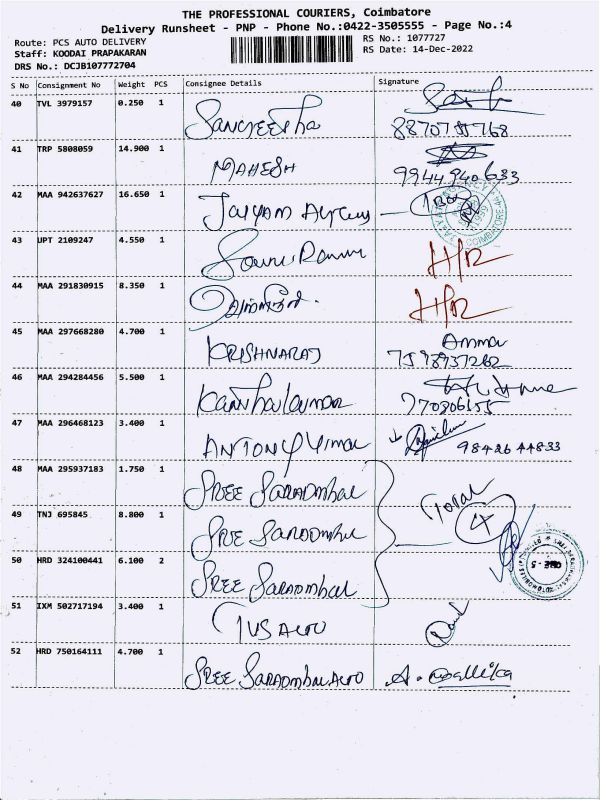 THE PROFESSIONAL COURIERS, Coimbatore
Delivery Runsheet - PNP - Phone No.:0422-3505555 - Page No.:4
Route: PCS AUTO DELIVERY
RS No.: 1077727
Staff: KOODAI PRAPAKARAN
RS Date: 14-Dec-2022
DRS No.: DCJB107772704
S No Consignment No Weight PCS Consignee Details Signature
40 TVL 3979157 0.250 1 Sangeetha
41 TRP 5808059 14.900 1 MAHESH
9944940633
42 MAA 942637627 16.650 1
43 UPT 2109247 4.550 1 H/R
44 MAA 291830915 8.350 1 H/R
45 MAA 297668280 4.700 1 KRISHNARAJ Amma
7598937262
46 MAA 294284456 5.500 1
47 MAA 296468123 3.400 1 ANTONY Vimal
9842644833
48 MAA 295937183 1.750 1 SREE SARADMBAL Total
49 TNJ 695845 8.800 1 SREE SARADMBAL 4
50 HRD 324100441 6.100 2 SREE SARADMBAL
51 IXM 502717194 3.400 1 TVS AUTO
52 HRD 750164111 4.700 1 SREE SARADMBAL AUTO A. Mallika